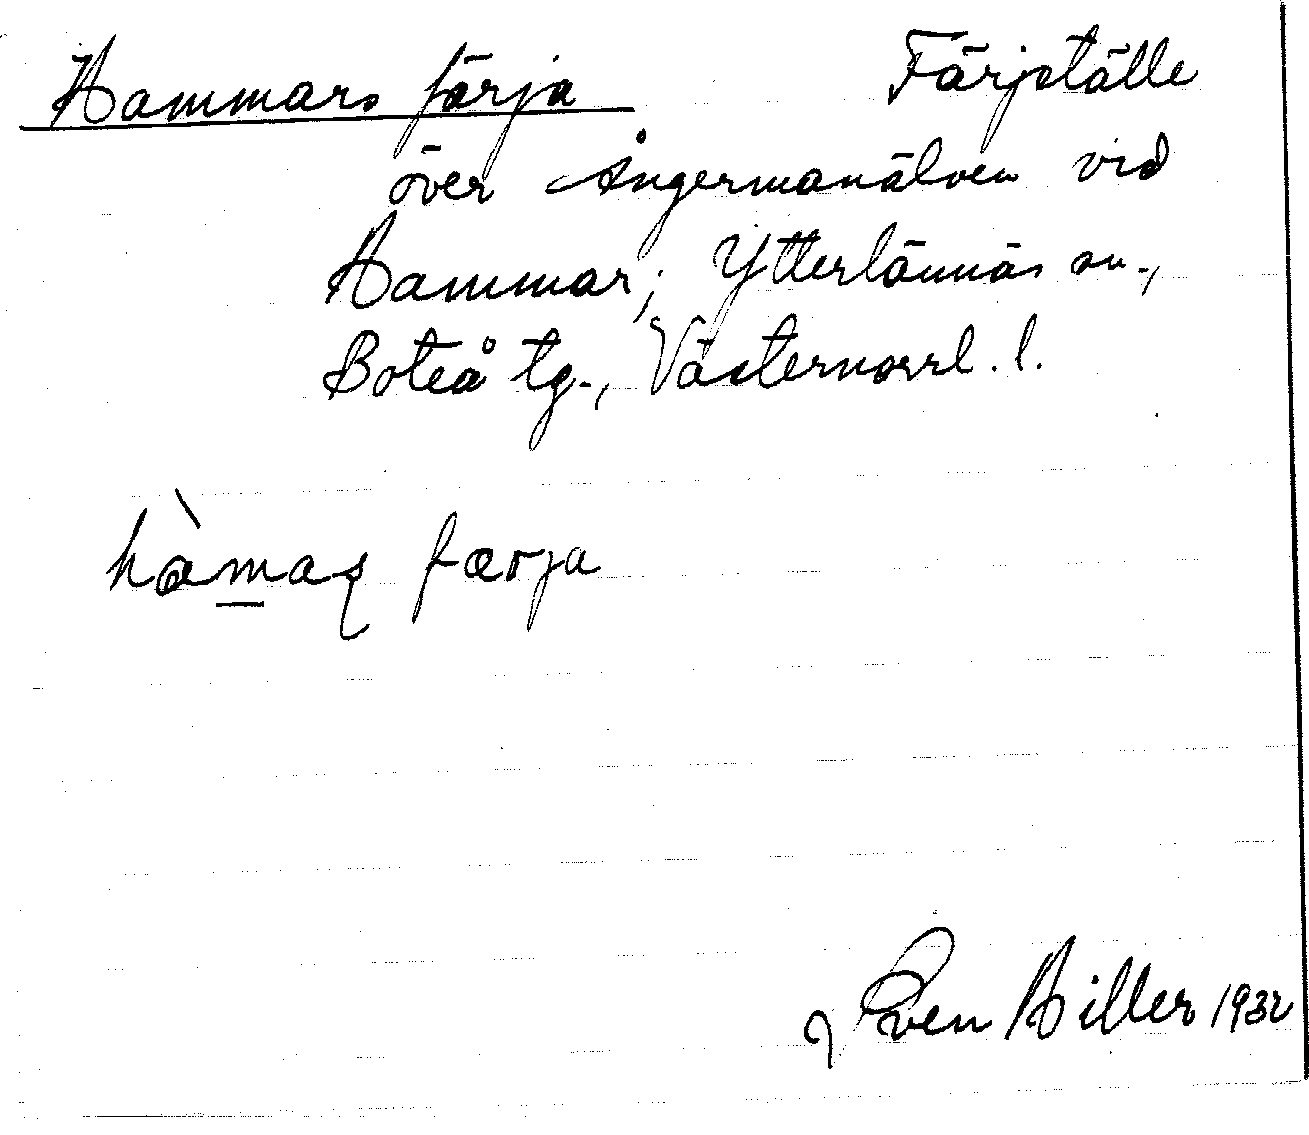 Hammars färja Färjställe
över Ångermanälven vid
Hammar; Ytterlännäs sn.,
Boteå tg., Västernorrl. l.
hàmaʂ færja
Sven Hiller 1932